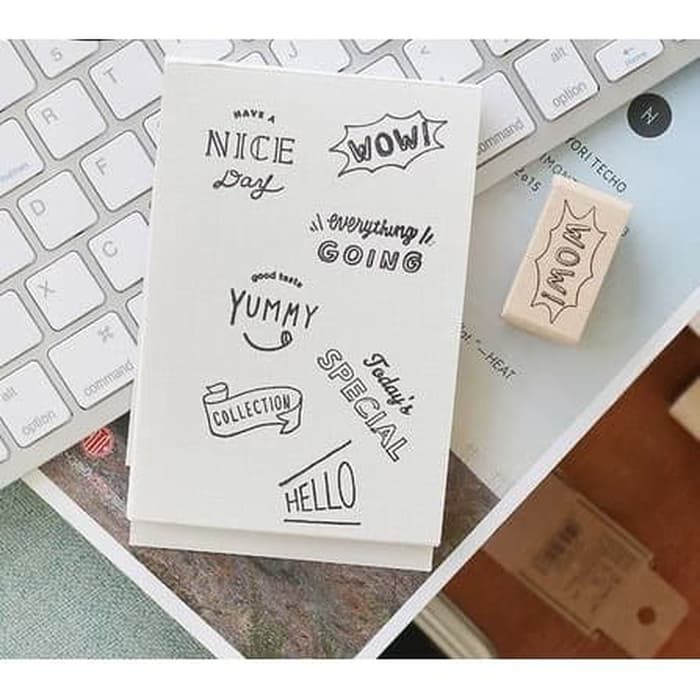 HAVE A
NICE
Day
WOW!
everything
GOING
good taste
YUMMY
Today's
SPECIAL
COLLECTION
HELLO
WOW!
R
T
D
F
X
C
J
<
⌘
alt
option
command
alt
option
command
ORI TECHO
2015
—HEAT